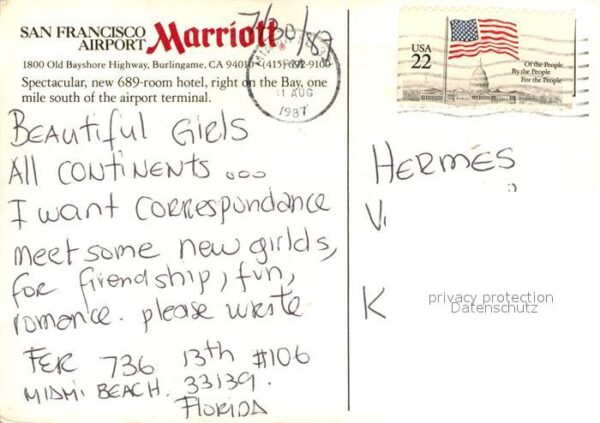 SAN FRANCISCO
AIRPORT Marriott.
7/30/87
1800 Old Bayshore Highway, Burlingame, CA 94010 • (415) 692-9100
Spectacular, new 689-room hotel, right on the Bay, one
mile south of the airport terminal.
1 AUG
1987
USA
22
Of the People
By the People
For the People
BEAUTIFUL GIRLS
All CONTINENTS ...
I WANT CORRESPUNDANCE
MEET SOME NEW GIRLDS,
FOR FIRENDSHIP, FUN,
ROMANCE. PLEASE WRITE
FER 736 13th #106
MIAMI BEACH. 33139.
FLORIDA
HERMES
V.
K
privacy protection
Datenschutz